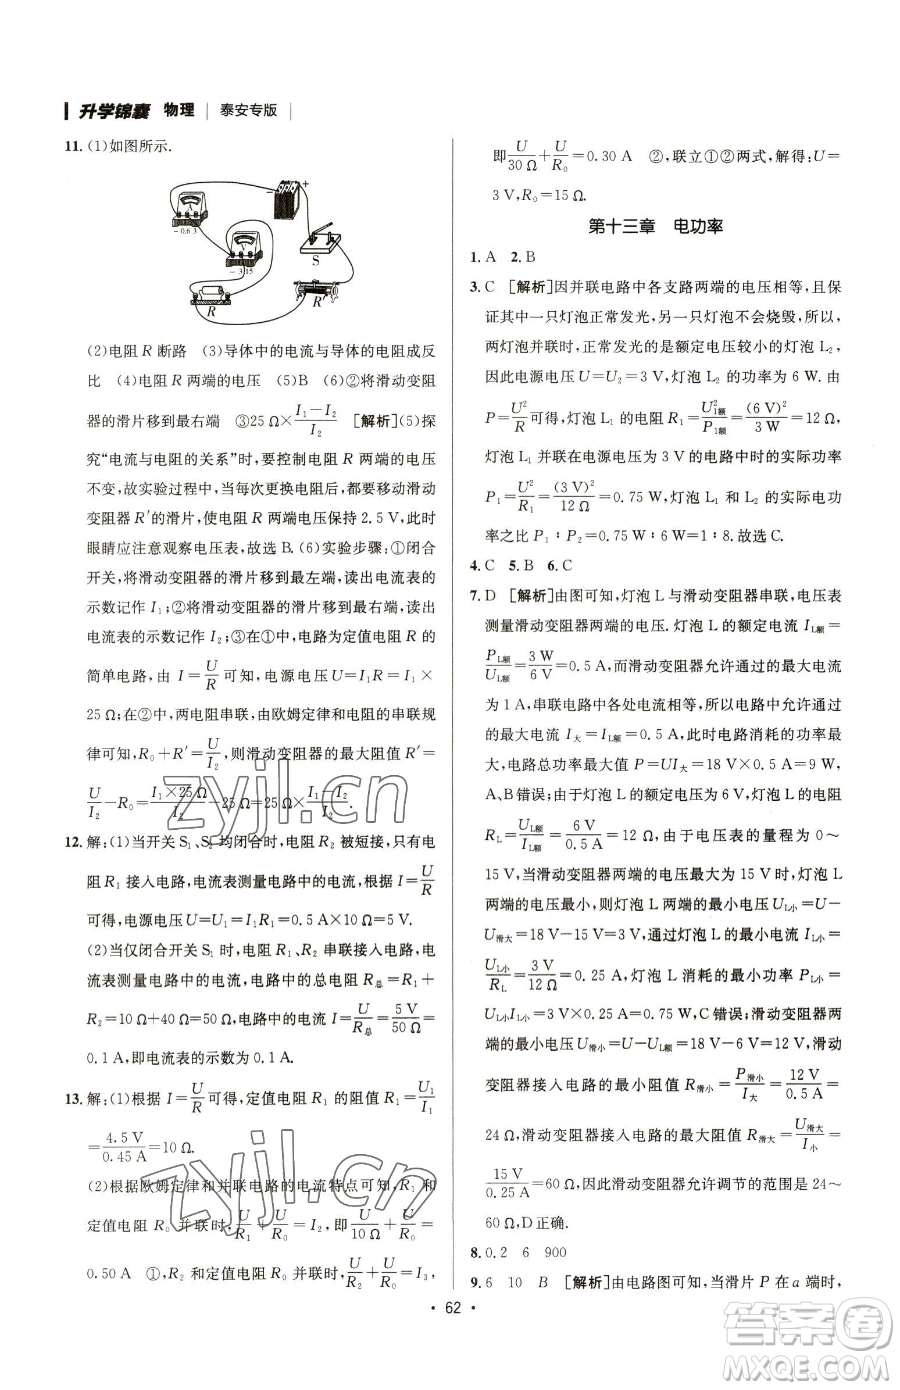 升学锦囊 物理 | 泰安专版
11. (1)如图所示.
A
-0.6 3
V
-3 15
- +
S
R
R′
(2)电阻 R 断路 (3)导体中的电流与导体的电阻成反
比 (4)电阻 R 两端的电压 (5)B (6)②将滑动变阻
器的滑片移到最右端 ③25 Ω×(I₁-I₂)/I₂ [解析](5)探
究“电流与电阻的关系”时,要控制电阻 R 两端的电压
不变,故实验过程中,当每次更换电阻后,都要移动滑动
变阻器 R′的滑片,使电阻 R 两端电压保持 2.5 V,此时
眼睛应注意观察电压表,故选 B. (6)实验步骤:①闭合
开关,将滑动变阻器的滑片移到最左端,读出电流表的
示数记作 I₁;②将滑动变阻器的滑片移到最右端,读出
电流表的示数记作 I₂;③在①中,电路为定值电阻 R 的
简单电路,由 I=U/R可知,电源电压 U=I₁R=I₁×
25 Ω;在②中,两电阻串联,由欧姆定律和电阻的串联规
律可知,R₀+R′=U/I₂,则滑动变阻器的最大阻值 R′=
U/I₂-R₀=(I₁×25 Ω)/I₂-25 Ω=25 Ω×(I₁-I₂)/I₂.
12. 解:(1)当开关 S₁、S₂ 均闭合时,电阻 R₂ 被短接,只有电
阻 R₁ 接入电路,电流表测量电路中的电流,根据 I=U/R
可得,电源电压 U=U₁=I₁R₁=0.5 A×10 Ω=5 V.
(2)当仅闭合开关 S₁ 时,电阻 R₁、R₂ 串联接入电路,电
流表测量电路中的电流,电路中的总电阻 R总=R₁+
R₂=10 Ω+40 Ω=50 Ω,电路中的电流 I=U/R总=5 V/50 Ω=
0.1 A,即电流表的示数为 0.1 A.
13. 解:(1)根据 I=U/R可得,定值电阻 R₁ 的阻值 R₁=U₁/I₁
=4.5 V/0.45 A=10 Ω.
(2)根据欧姆定律和并联电路的电流特点可知,R₁ 和
定值电阻 R₀ 并联时,U/R₁+U/R₀=I₂,即U/10 Ω+U/R₀=
0.50 A ①,R₂ 和定值电阻 R₀ 并联时,U/R₂+U/R₀=I₃,
即U/30 Ω+U/R₀=0.30 A ②,联立①②两式,解得:U=
3 V,R₀=15 Ω.
第十三章 电功率
1. A 2. B
3. C [解析]因并联电路中各支路两端的电压相等,且保
证其中一只灯泡正常发光,另一只灯泡不会烧毁,所以,
两灯泡并联时,正常发光的是额定电压较小的灯泡 L₂,
因此电源电压 U=U₂=3 V,L₂ 的功率为 6 W. 由
P=U²/R可得,灯泡 L₁ 的电阻 R₁=U²1额/P1额=(6 V)²/3 W=12 Ω,
灯泡 L₁ 并联在电源电压为 3 V 的电路中时的实际功率
P₁=U²/R₁=(3 V)²/12 Ω=0.75 W,灯泡 L₁ 和 L₂ 的实际电功
率之比 P₁∶P₂=0.75 W∶6 W=1∶8. 故选 C.
4. C 5. B 6. C
7. D [解析]由图可知,灯泡 L 与滑动变阻器串联,电压表
测量滑动变阻器两端的电压. 灯泡 L 的额定电流 IL额=
PL额/UL额=3 W/6 V=0.5 A,而滑动变阻器允许通过的最大电流
为 1 A,串联电路中各处电流相等,所以电路中允许通过
的最大电流 I大=IL额=0.5 A,此时电路消耗的功率最
大,电路总功率最大 P=UI大=18 V×0.5 A=9 W,
A、B 错误;由于灯泡 L 的额定电压是 6 V,灯泡的电阻
RL=UL额/IL额=6 V/0.5 A=12 Ω,由于电压表的量程为 0~
15 V,当滑动变阻器两端的电压最大为 15 V 时,灯泡 L
两端的电压最小,则灯泡 L 两端的最小电压 UL小=U-
U滑大=18 V-15 V=3 V,通过灯泡 L 的最小电流 IL小=
UL小/RL=3 V/12 Ω=0.25 A,灯泡 L 消耗的最小功率 PL小=
UL小IL小=3 V×0.25 A=0.75 W,C 错误;滑动变阻器两
端的最小电压 U滑小=U-UL额=18 V-6 V=12 V,滑动
变阻器接入电路的最小阻值 R滑小=P滑小/I大=12 V/0.5 A=
24 Ω,滑动变阻器接入电路的最大阻值 R滑大=U滑大/IL小
=15 V/0.25 A=60 Ω,因此滑动变阻器允许调节的范围是 24~
60 Ω,D 正确.
8. 0.2 6 900
9. 6 10 B [解析]由电路图可知,当滑片 P 在 a 端时,
· 62 ·
zyjl.cn
zyjl.cn
答案圈
MXQE.COM